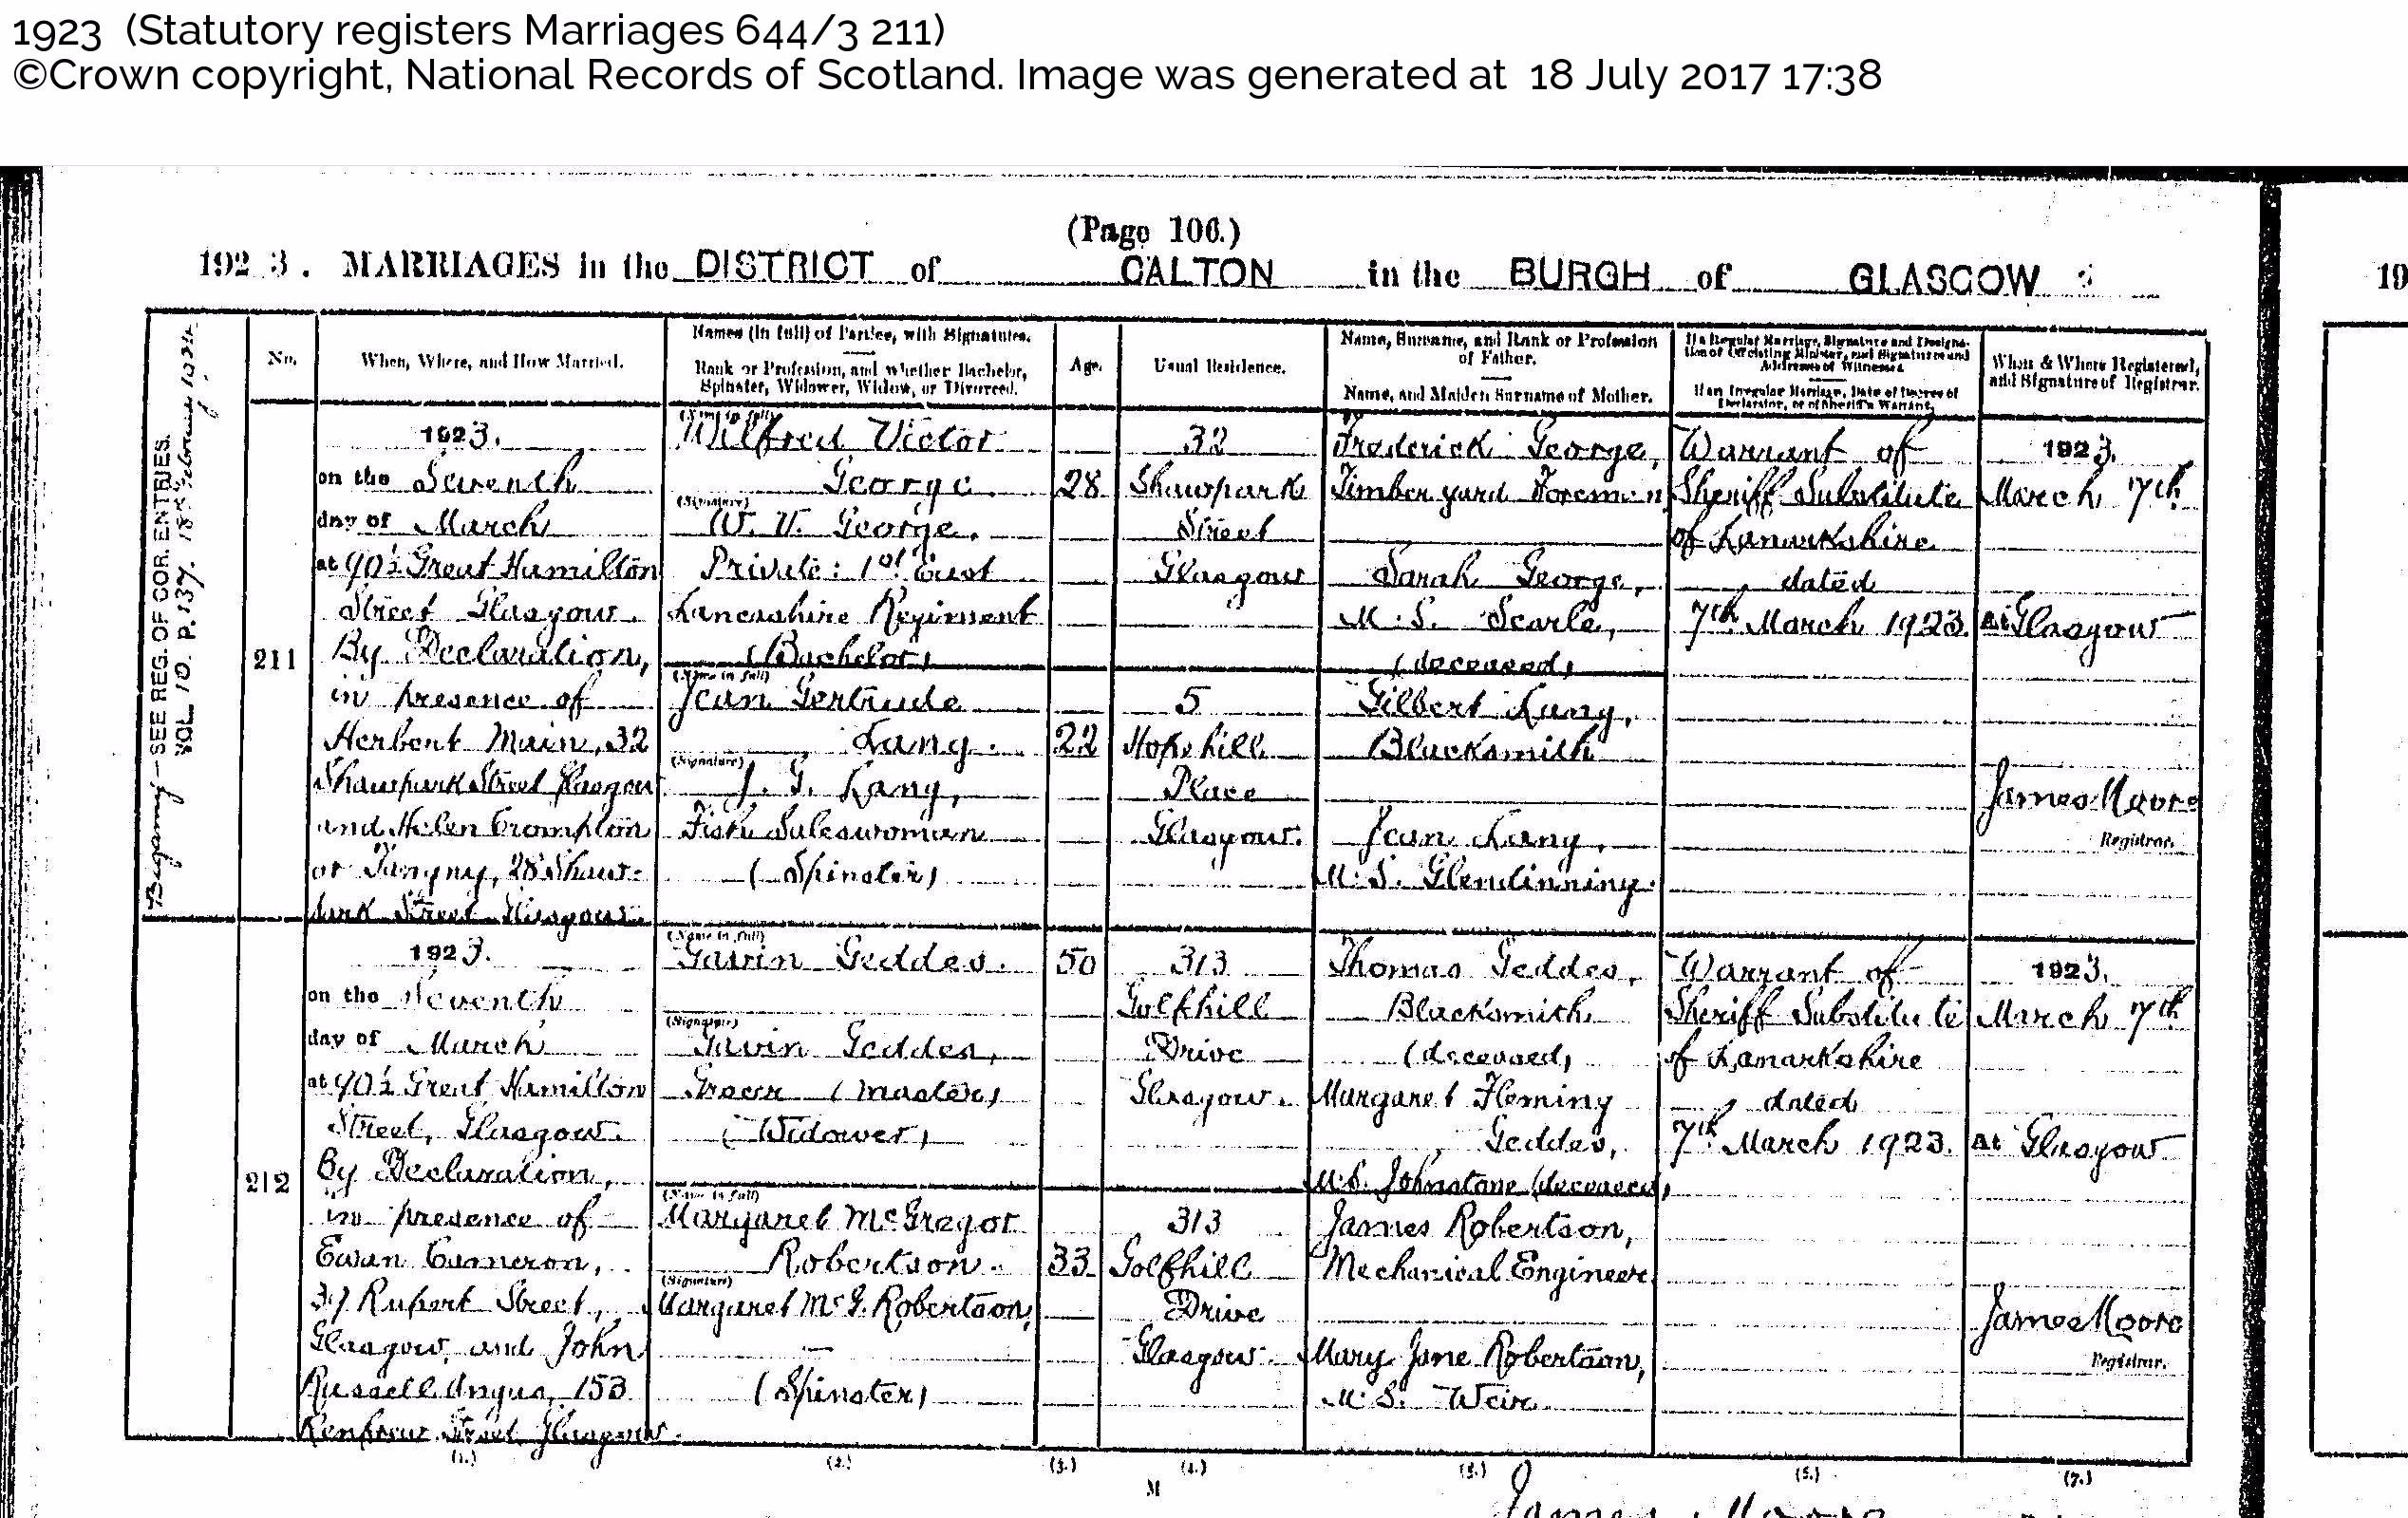 1923 (Statutory registers Marriages 644/3 211)
©Crown copyright, National Records of Scotland. Image was generated at 18 July 2017 17:38
(Page 106.)
1923. MARRIAGES in the DISTRICT of CALTON in the BURGH of GLASGOW
19
No.
When, Where, and How Married.
Names (in full) of Parties, with Signatures.
Rank or Profession, and whether Bachelor,
Spinster, Widower, Widow, or Divorced.
Age.
Usual Residence.
Name, Surname, and Rank or Profession
of Father.
Name, and Maiden Surname of Mother.
If a Regular Marriage, Signature and Designa-
tion of Officiating Minister, and Signatures and
Addresses of Witnesses.
If an Irregular Marriage, Date of Decree of
Declarator, or of Sheriff's Warrant.
When & Where Registered,
and Signature of Registrar.
Bigamy — SEE REG. OF COR. ENTRIES.
VOL 10. P. 137. 18th February 1924.
211
1923.
on the Seventh
day of March
at 90½ Great Hamilton
Street Glasgow.
By Declaration,
in presence of
Herbert Main, 32
Shawpark Street Glasgow
and Helen Crompton
or 28 Shaw-
park Street Glasgow.
(Name in full)
Wilfred Victor
George.
(Signature)
W. V. George.
Private: 1st East
Lancashire Regiment
(Bachelor)
28
32
Shawpark
Street
Glasgow
Frederick George,
Timber yard Foreman
Sarah George,
M.S. Searle,
(deceased)
(Name in full)
Jean Gertrude
Lang.
(Signature)
J. G. Lang,
Fish Saleswoman
(Spinster)
22
5
Hopehill
Place
Glasgow.
Gilbert Lang,
Blacksmith
Jean Lang,
M.S. Glendinning.
Warrant of
Sheriff Substitute
of Lanarkshire
dated
7th March 1923.
1923.
March 7th
At Glasgow
James Moore
Registrar.
212
1923.
on the Seventh
day of March
at 90½ Great Hamilton
Street, Glasgow.
By Declaration,
in presence of
Ewan Cameron,
37 Rupert Street,
Glasgow, and John
Russell Angus, 153
Renfrew Street Glasgow.
(Name in full)
Gavin Geddes.
(Signature)
Gavin Geddes,
Grocer (master)
(Widower)
50
313
Golfhill
Drive
Glasgow.
Thomas Geddes,
Blacksmith
(deceased)
Margaret Fleming
Geddes,
M.S. Johnstone (deceased)
(Name in full)
Margaret McGregor
Robertson.
(Signature)
Margaret McG. Robertson,
(Spinster)
33
313
Golfhill
Drive
Glasgow.
James Robertson,
Mechanical Engineer
Mary Jane Robertson,
M.S. Weir
Warrant of
Sheriff Substitute
of Lanarkshire
dated
7th March 1923.
1923.
March 7th
At Glasgow
James Moore
Registrar.
(1.) (2.) (3.) (4.) (5.) (6.) (7.)
M
James Moore